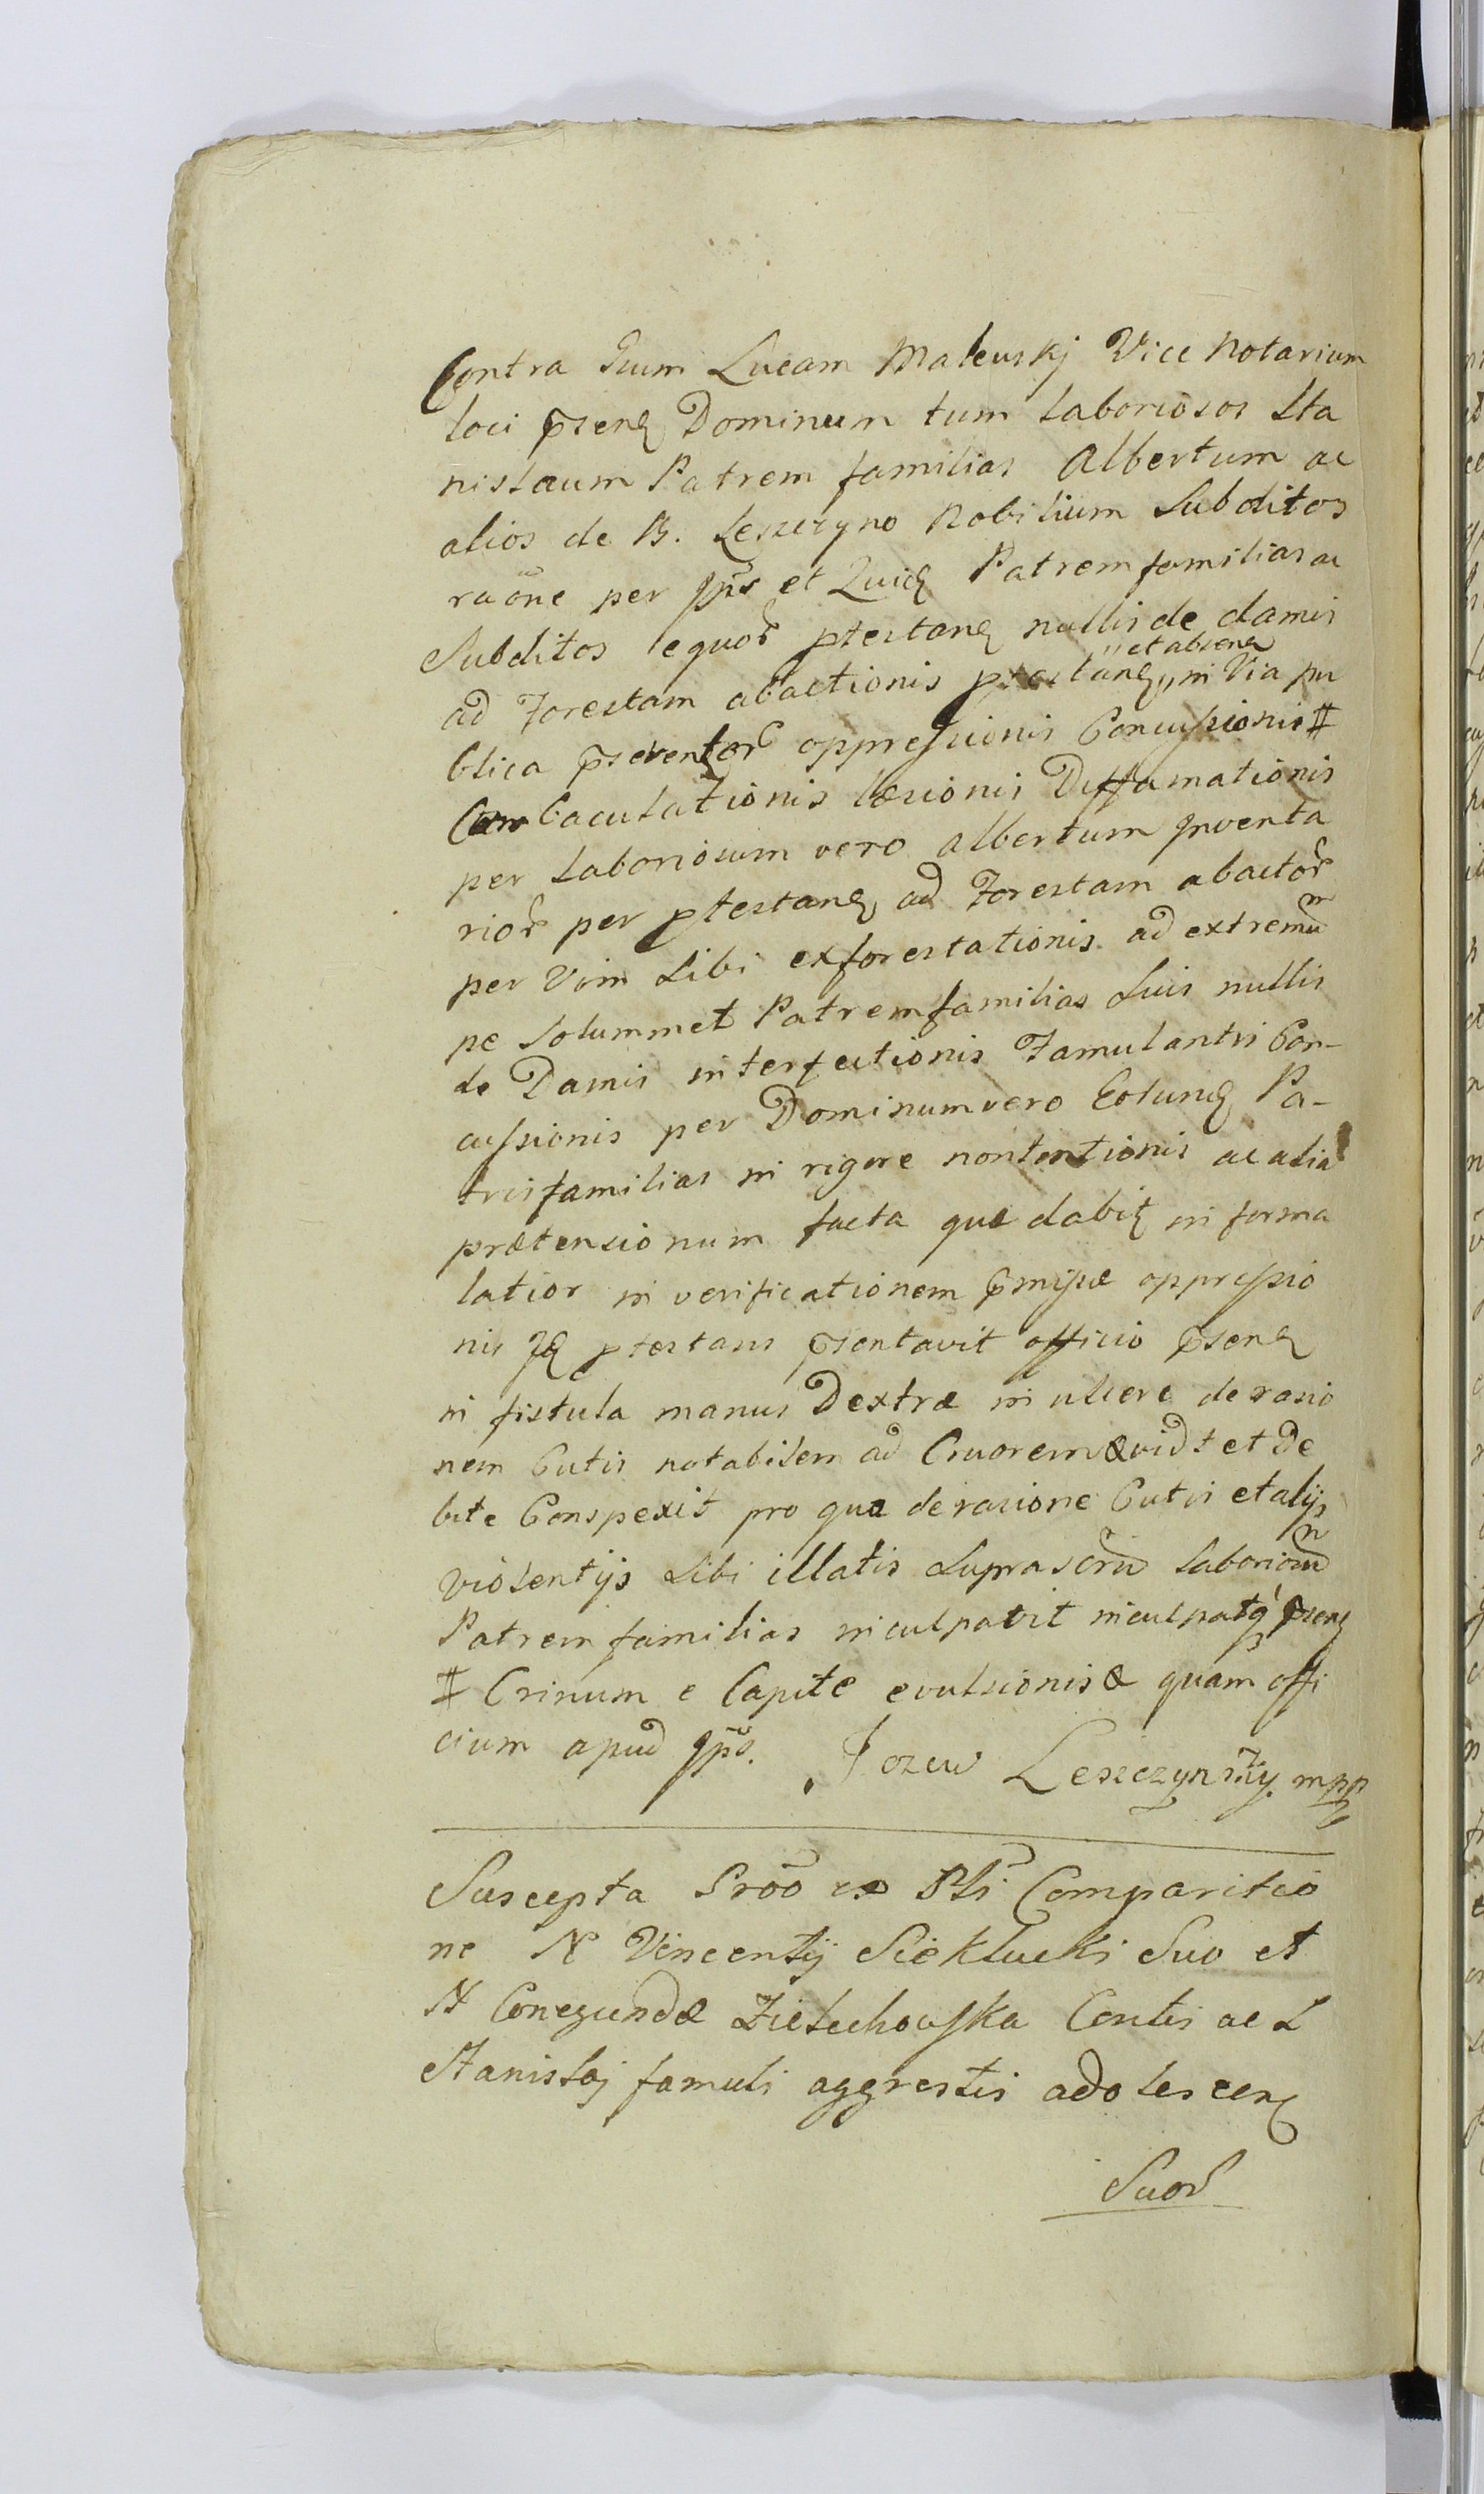 Contra Gnum Lucam Malewskj Vice Notarium
loci pñsenꝭ Dominum tum Laboriosos Sta
nislaum Patrem familias Albertum ac
alios de B. Leszczyno Nobilium Subditos
raõne per ipãs et Patrem familias ac
Subditos equoꝝ ptestanꝭ nullis de damis
ad Forestam abactionis ptestanꝭ "et absenꝭ" in Via pu
blica oppressionis Concussionis #
Baculationis læsionis Diffamationis
per Laboriosum vero Albertum Inventa
rioꝝ per ptestanꝭ ad Forestam abactoꝝ
per Vim Sibi exforestationis ad extremum
pe Solummet Patremfamilias Suis nullis
de Damis interfectionis Famulantis Con-
cussionis per Dominum vero Eorundꝭ Pa-
trisfamilias in rigore nontentionis ac alia
prætensionum facta quæ dabitꝭ in forma
latior in verificationem pmissæ oppressio
nis Idꝭ ptestans pñsentavit officio pñsenꝭ
in fistula manus Dextræ in ulcere derasio
nem Cutis notabilem ad Cruorem & vidit et De
bite Conspexit pro qua derasione Cutis et alijs
violentijs Sibi illatis Suprascrũ Laboriosum
Patrem familias inculpavit inculpatqꝫ pñsenꝭ
# Crinum e Capite evulsionis & quam offi
cium apud ipãs. Jozew Leszczynski mpp
Suscepta Proõ ex Pli Comparitio
ne N Vincentij Siekłucki Suo et
N Conegundæ Zielechowska Contis ac L
Stanislaj famuli aggrestis adolescenꝭ
Suoꝝ